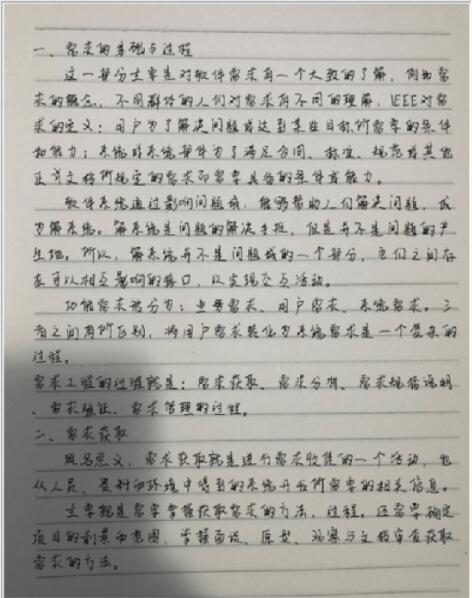 一、需求的基础与过程
这一部分主要是对软件需求有一个大致的了解，例如需
求的概念，不同群体的人们对需求有不同的理解，IEEE对需
求的定义：用户为了解决问题或达到某些目标所需要的条件
和能力；系统或系统部件为了满足合同、标准、规范或其他
正式文档所规定的需求而需要具备的条件或能力。
软件系统通过影响问题域，能够帮助人们解决问题，成
为解系统。解系统是问题的解决手段，但是并不是问题的产
生地。所以，解系统并不是问题域的一个部分，它们之间存
在可以相互影响的接口，以实现交互活动。
功能需求被分为：业务需求、用户需求、系统需求。三
者之间有所区别，将用户需求转化为系统需求是一个复杂的
过程。
需求工程的过程就是：需求获取、需求分析、需求规格说明
、需求验证、需求管理的过程。
二、需求获取
顾名思义，需求获取就是进行需求收集的一个活动，它
从人员、资料和环境中得到的系统开发所需要的相关信息。
主要就是需要掌握获取需求的方法，过程，还需要确定
项目的前景和范围，掌握面谈、原型、观察与文档审查获取
需求的方法。